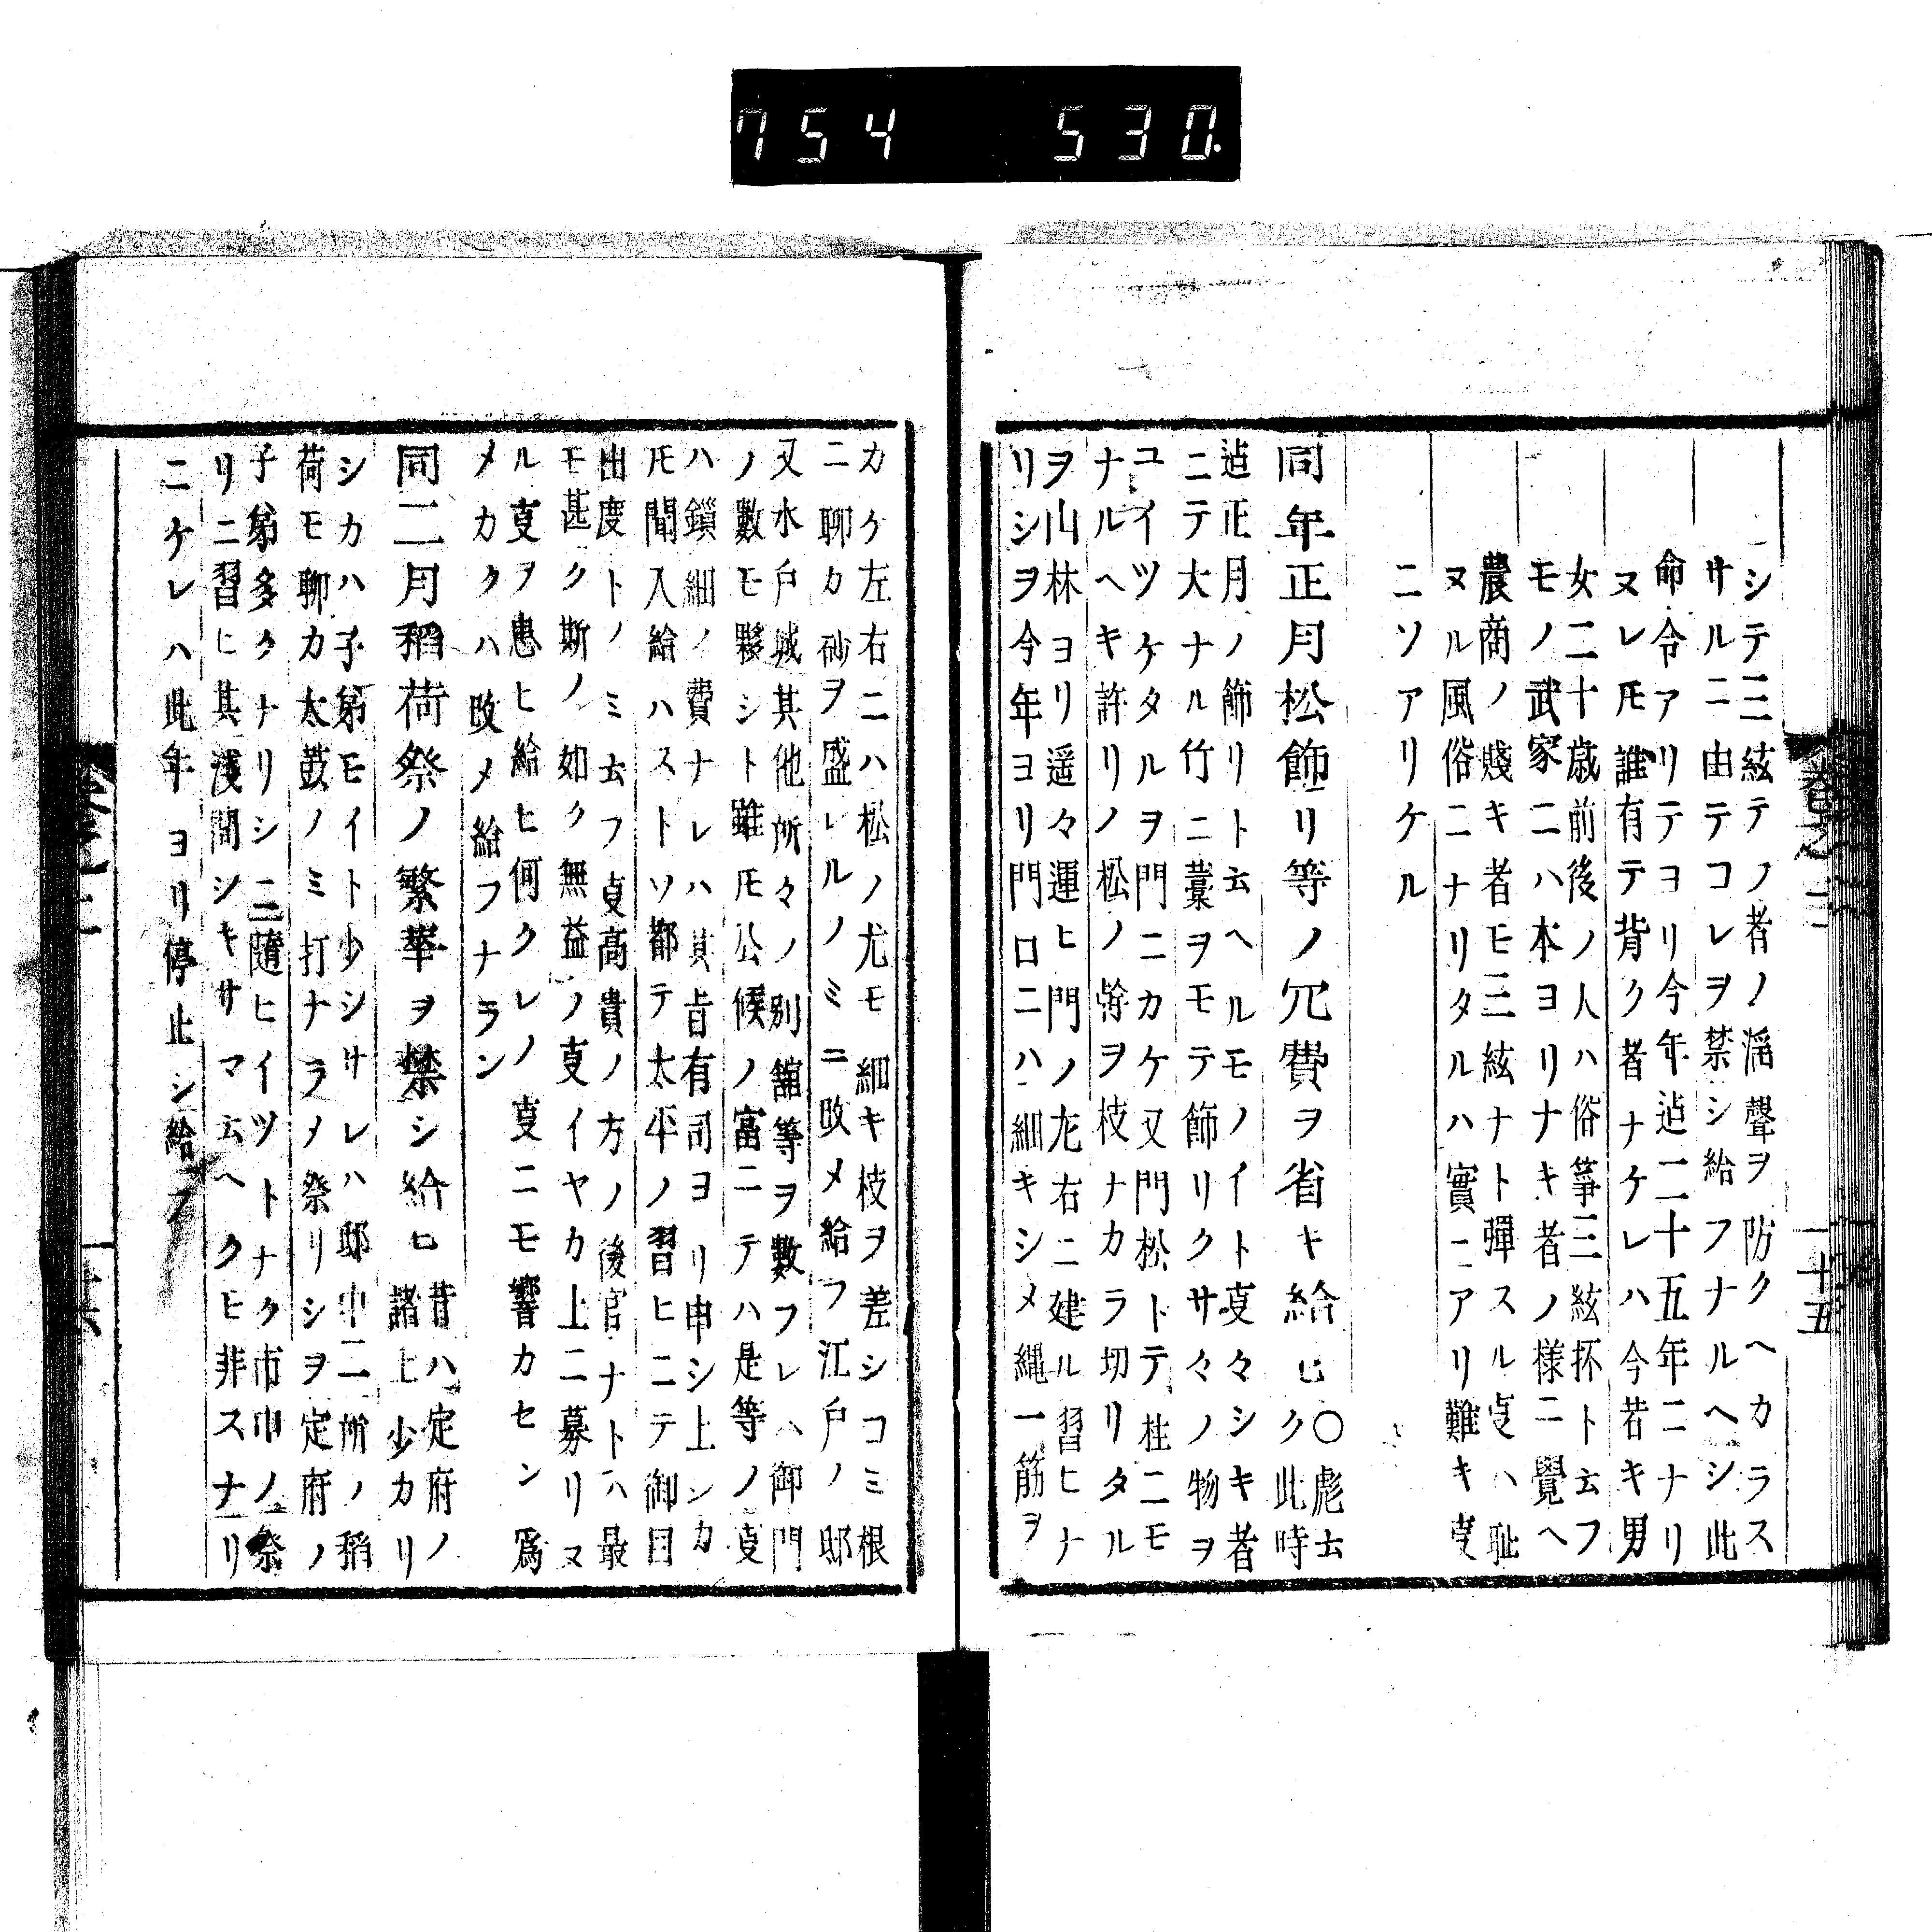 754 530.
シテ三絃テノ者ノ滔聲ヲ防クヘカラス
サルニ由テコレヲ禁シ給フナルヘシ此
命令アリテヨリ今年迠二十五年ニナリ
ヌレ𪜈誰有テ背ク者ナケレハ今若キ男
女二十歳前後ノ人ハ俗箏三絃抔ト云フ
モノ武家ニハ本ヨリナキ者ノ様ニ覺ヘ
農商ノ賤キ者モ三絃ナト彈スル叓ハ耻
ヌル風俗ニナリタルハ實ニアリ難キ叓
ニソアリケル
同年正月松飾リ等ノ冗費ヲ省キ給ヒ
○彪云
ク此時
迠正月ノ飾リト云ヘルモノイト叓々シキ者
ニテ大ナル竹ニ藁ヲモテ飾リクサ々ノ物ヲ
ユイツケタルヲ門ニカケ又門松トテ柱ニモ
ナルヘキ許リノ松ノ幹ヲ枝ナカラ切リタル
ヲ山林ヨリ遥々運ヒ門ノ左右ニ建ル習ヒナ
リシヲ今年ヨリ門口ニハ細キシメ縄一筋ヲ
十五
カケ左右ニハ松ノ尤モ細キ枝ヲ差シコミ根
ニ聊カ砂ヲ盛レルノミニ改メ給フ江戸ノ邸
又水戸城其他所々ノ別舘等ヲ數フレハ御門
ノ數モ夥シト雖𪜈公侯ノ富ニテハ是等ノ叓
ハ鎖細ノ費ナレハ其旨有司ヨリ申シ上シカ
𪜈聞入給ハストソ都テ太平ノ習ヒニテ御目
出度トノミ云フ叓高貴ノ方ノ後官ナトハ最
モ甚ク斯ノ如ク無益ノ叓イヤカ上ニ募リヌ
ル叓ヲ患ヒ給ヒ何クレノ叓ニモ響カセン爲
メカクハ改メ給フナラン
同二月稻荷祭ノ繁華ヲ禁シ給ヒ
昔ハ定府ノ
諸士少カリ
シカハ子弟モイト少シサレハ邸中二所ノ稻
荷モ聊カ太鼓ノミ打ナラノ祭リシヲ定府ノ
子弟多クナリシニ隨ヒイツトナク市中ノ祭
リニ習ヒ其淺間シキサマ云ヘクヒ非スナリ
ニケレハ此年ヨリ停止シ給フ